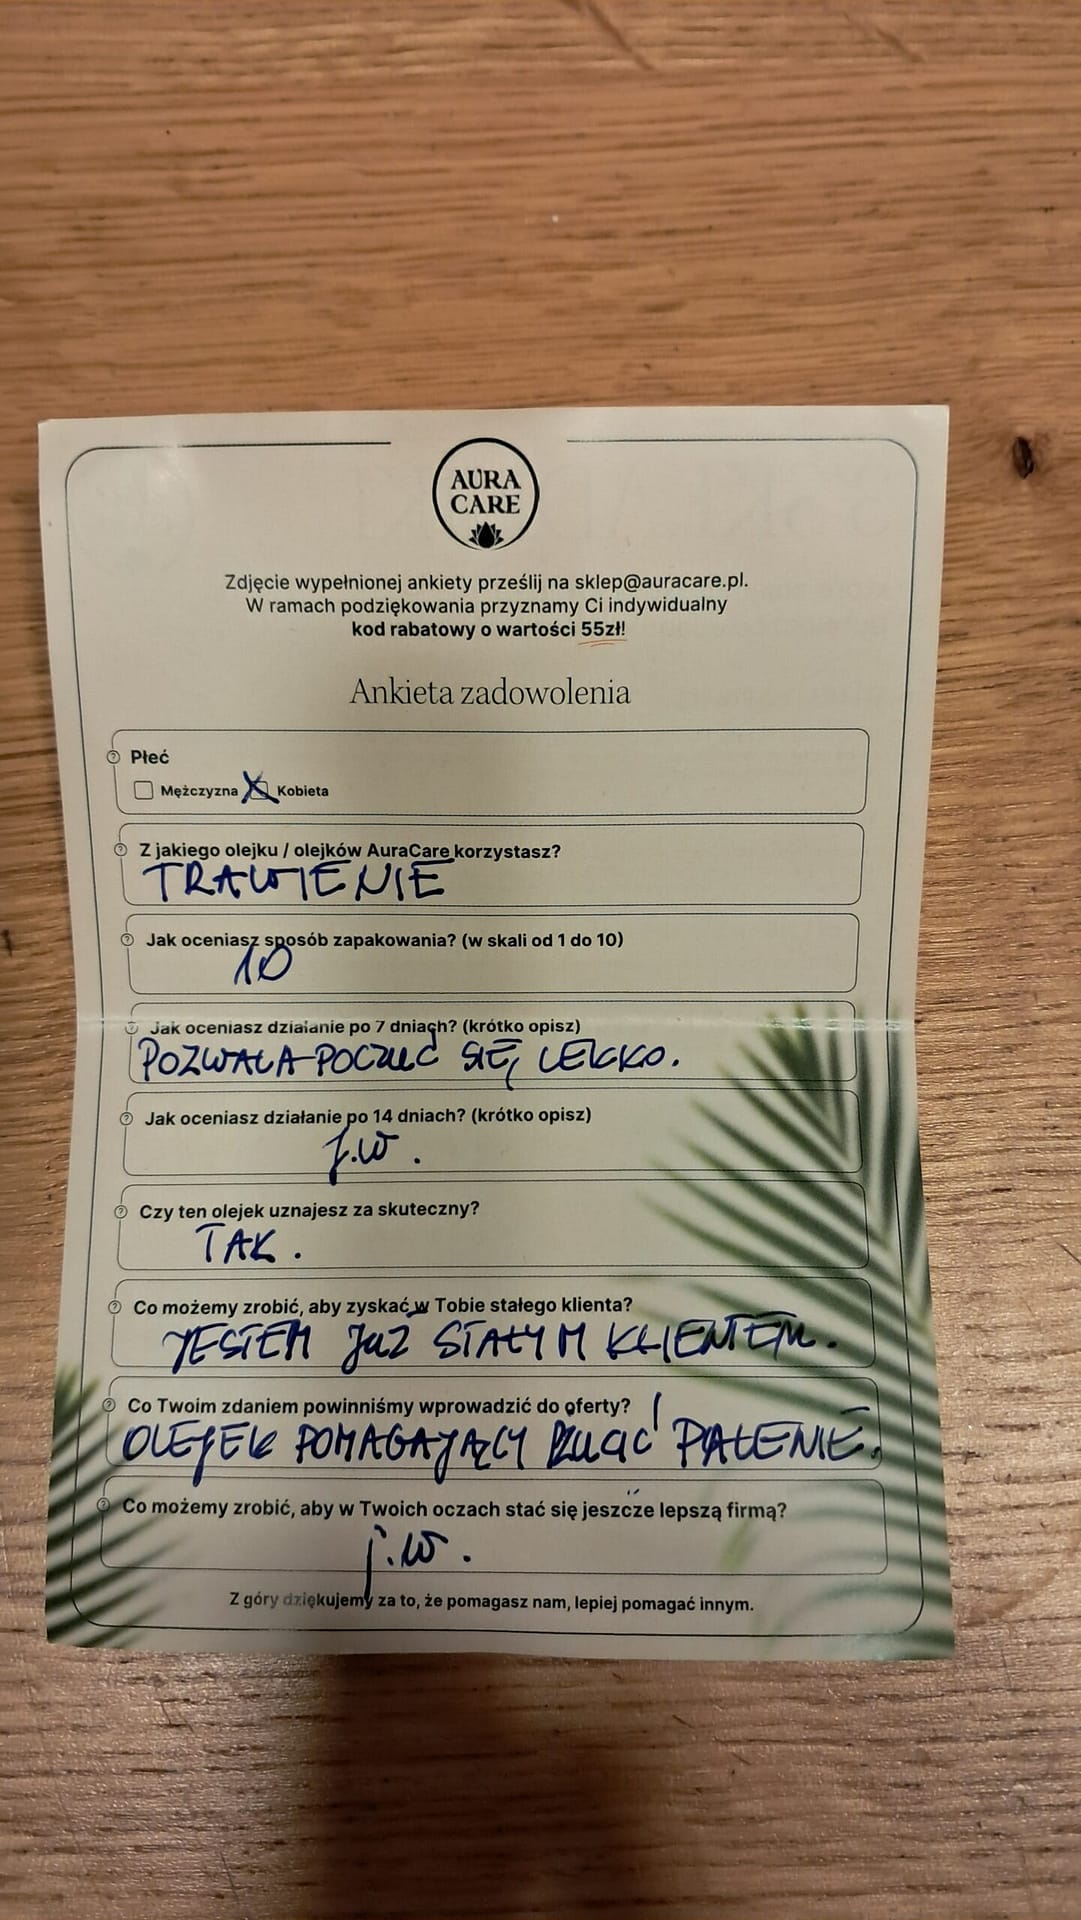 AURA
CARE
Zdjęcie wypełnionej ankiety prześlij na sklep@auracare.pl.
W ramach podziękowania przyznamy Ci indywidualny
kod rabatowy o wartości 55zł!
Ankieta zadowolenia
Płeć
Mężczyzna X Kobieta
Z jakiego olejku / olejków AuraCare korzystasz?
TRAWIENIE
Jak oceniasz sposób zapakowania? (w skali od 1 do 10)
10
Jak oceniasz działanie po 7 dniach? (krótko opisz)
POZWALA POCZUĆ SIĘ LEKKO.
Jak oceniasz działanie po 14 dniach? (krótko opisz)
j.w.
Czy ten olejek uznajesz za skuteczny?
TAK.
Co możemy zrobić, aby zyskać w Tobie stałego klienta?
JESTEM JUŻ STAŁYM KLIENTEM.
Co Twoim zdaniem powinniśmy wprowadzić do oferty?
OLEJEK POMAGAJĄCY RZUCIĆ PALENIE.
Co możemy zrobić, aby w Twoich oczach stać się jeszcze lepszą firmą?
j.w.
Z góry dziękujemy za to, że pomagasz nam, lepiej pomagać innym.